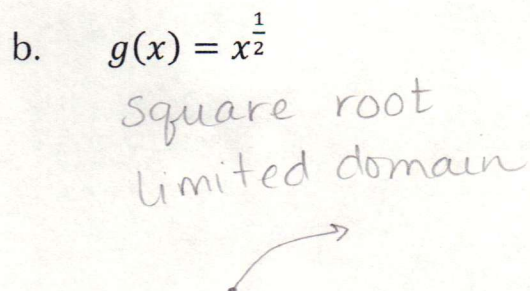 b. g(x) = x^{\frac{1}{2}}
square root
limited domain